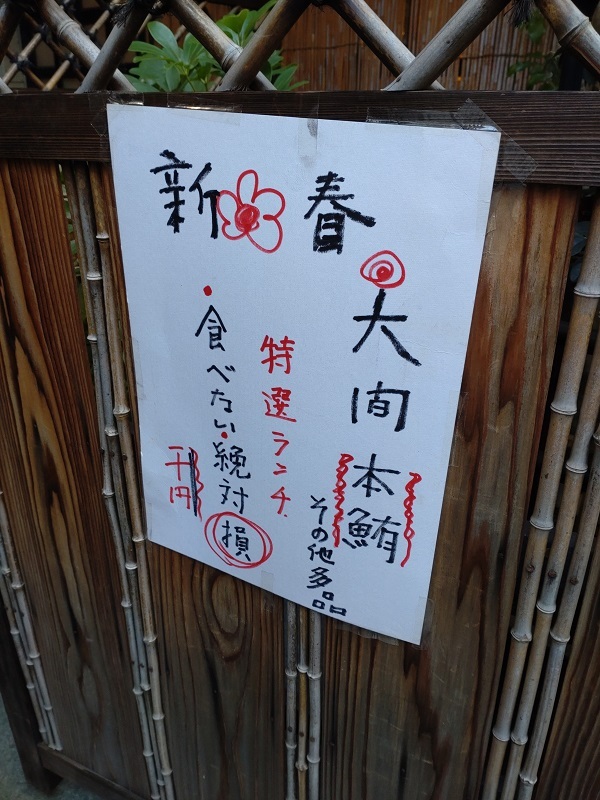 新春
大間
本鮪
その他多品
特選ランチ
食べない絶対損
千円